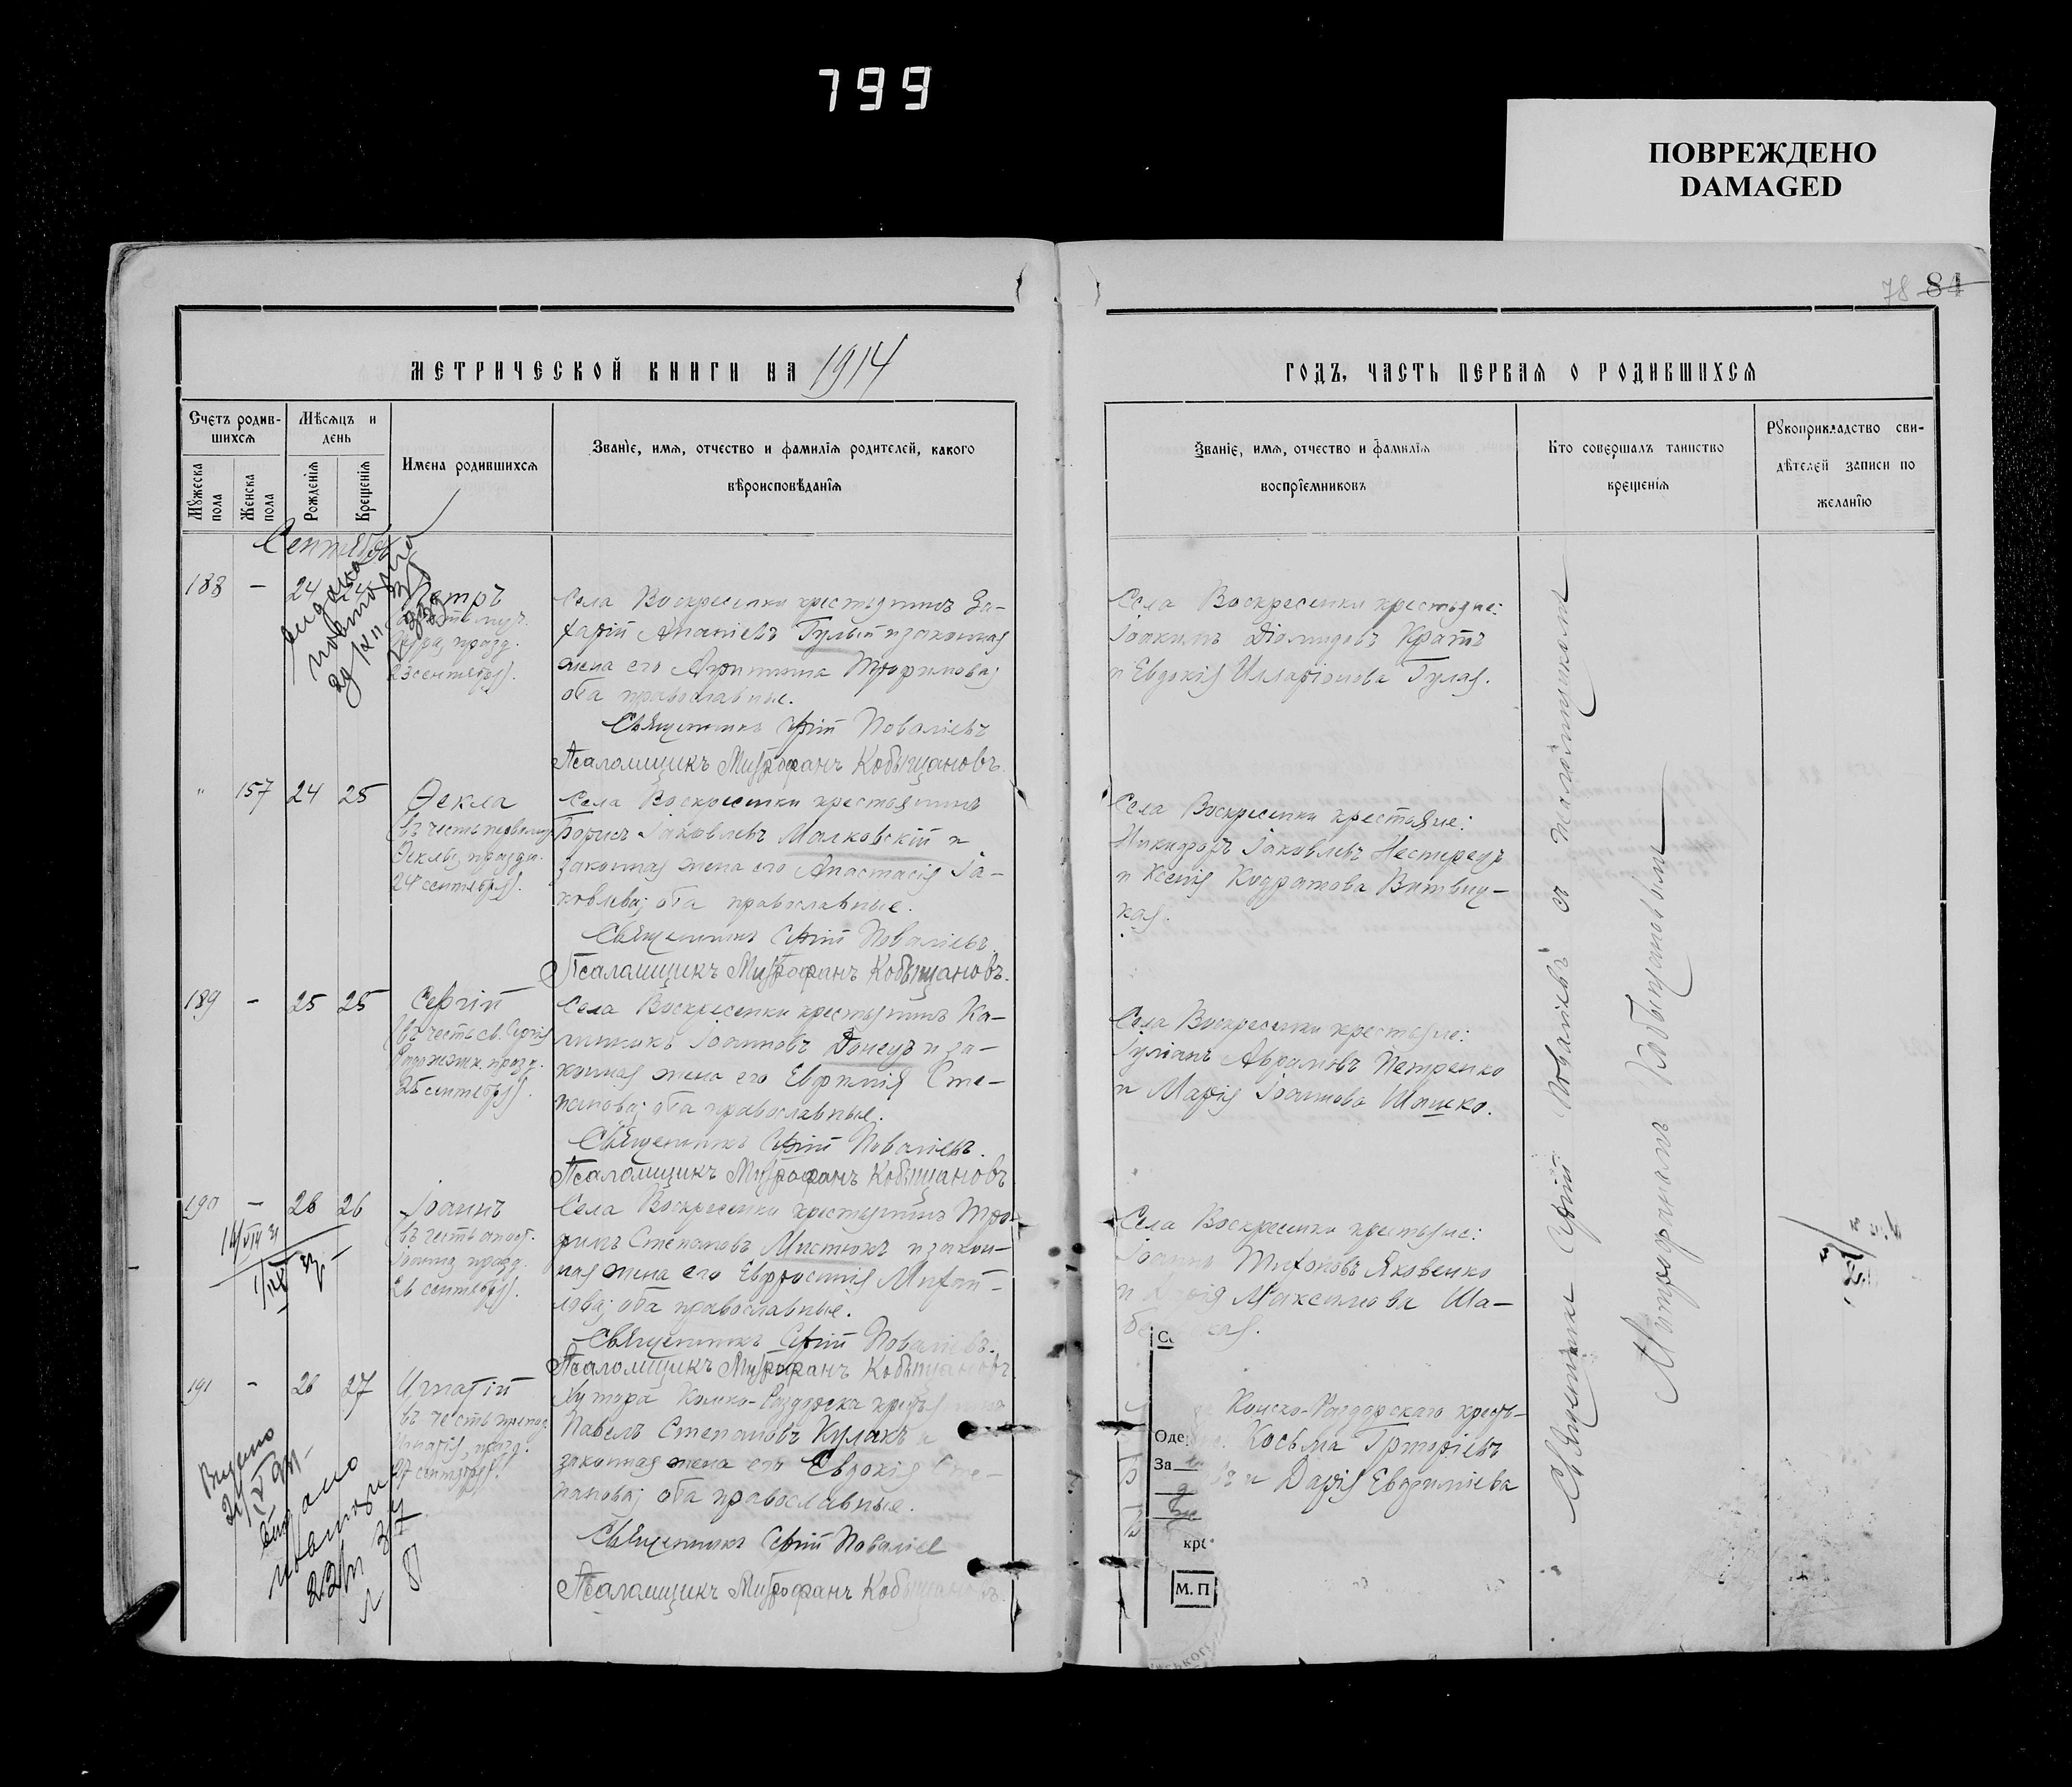 799
ПОВРЕЖДЕНО
DAMAGED
78 84
МЕТРИЧЕСКОЙ КНИГИ НА 1914
ГОДЪ, ЧАСТЬ ПЕРВАЯ О РОДИВШИХСЯ
Счетъ родив-
шихся
Мѣсяцъ и
день
Мужеска
пола
Женска
пола
Рожденія
Крещенія
Имена родившихся
Званіе, имя, отчество и фамилія родителей, какого
вѣроисповѣданія
Званіе, имя, отчество и фамилія
воспріемниковъ
Кто совершалъ таинство
крещенія
Рукоприкладство сви-
дѣтелей записи по
желанію
Сентябрь
188 — 24 24 Петръ
23 сентября).
Села Воскресенки крестьянинъ За-
харій Ананіевъ Гулый и законная
жена его Агрипина Трофимова;
оба православные.
Священникъ Сергій Поваліевъ
Псаломщикъ Митрофанъ Кобыщановъ.
Села Воскресенки крестьяне:
Іоакимъ Діомидовъ Кратъ
и Евдокія Илларіонова Гулая.
" 157 24 25 Ѳекла
(въ честь первомуч.
Ѳеклы, праздн.
24 сентября).
Села Воскресенки крестьянинъ
Борисъ Іаковлевъ Малковскій и
законная жена его Анастасія Іа-
ковлева; оба православные.
Священникъ Сергій Поваліевъ.
Псаломщикъ Митрофанъ Кобыщановъ.
Села Воскресенки крестьяне:
Никифоръ Іаковлевъ Нестерецъ
и Ксенія Кодратова Витвиц-
кая.
189 — 25 25 Сергій
(въ честь св. Сергія
Радонежск. празд.
25 сентября).
Села Воскресенки крестьянинъ Ка-
линникъ Іоанновъ Донецъ и за-
конная жена его Евфимія Сте-
панова; оба православные.
Священникъ Сергій Поваліевъ.
Псаломщикъ Митрофанъ Кобыщановъ
Села Воскресенки крестьяне:
Іуліанъ Аврамовъ Петренко
и Марія Іоаннова Шашко.
190 — 26 26 Іоаннъ
(въ честь апост.
Іоанна празд.
26 сентября).
Села Воскресенки крестьянинъ Тро-
фимъ Степановъ Мистюкъ и закон-
ная жена его Евфросинія Михай-
лова; оба православные.
Священникъ Сергій Поваліевъ.
Псаломщикъ Митрофанъ Кобыщановъ
Села Воскресенки крестьяне:
Іоаннъ Тихоновъ Яковенко
и Максимова Ша-
191 — 26 27 Игнатій
въ честь препод.
Игнатія, празд.
27 сентября).
Хутора Конско-Раздорска
Павелъ Степановъ Кулакъ и
законная жена его Евдокія Сте-
панова; оба православные.
Священникъ Сергій Поваліев
Псаломщикъ Митрофанъ Кобыщановъ.
Конско-Раздорскаго кресть-
Косьма Григоріевъ
и Дарія Евфиміева
Оде
За
М. П
Священникъ Сергій Поваліевъ съ псаломщикомъ
Митрофаномъ Кобыщановымъ